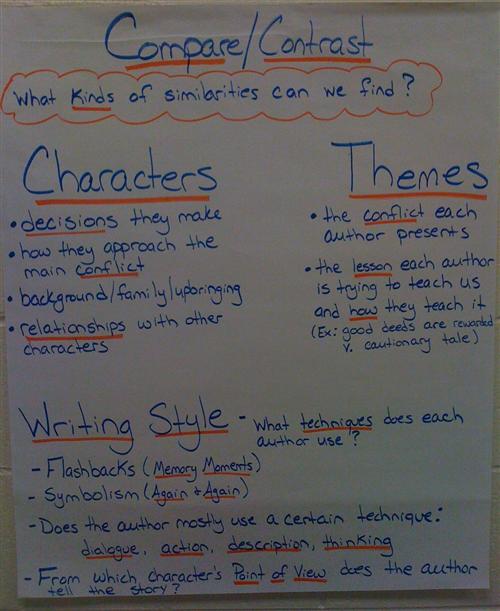 Compare/Contrast
What Kinds of similarities can we find?
Characters
• decisions they make
• how they approach the
main conflict
• background/family/upbringing
• relationships with other
characters
Themes
• the conflict each
author presents
• the lesson each author
is trying to teach us
and how they teach it
(Ex: good deeds are rewarded
v. cautionary tale)
Writing Style - What techniques does each
author use?
- Flashbacks (Memory Moments)
- Symbolism (Again & Again)
- Does the author mostly use a certain technique:
dialogue, action, description, thinking
- From which character's Point of View does the author
tell the story?